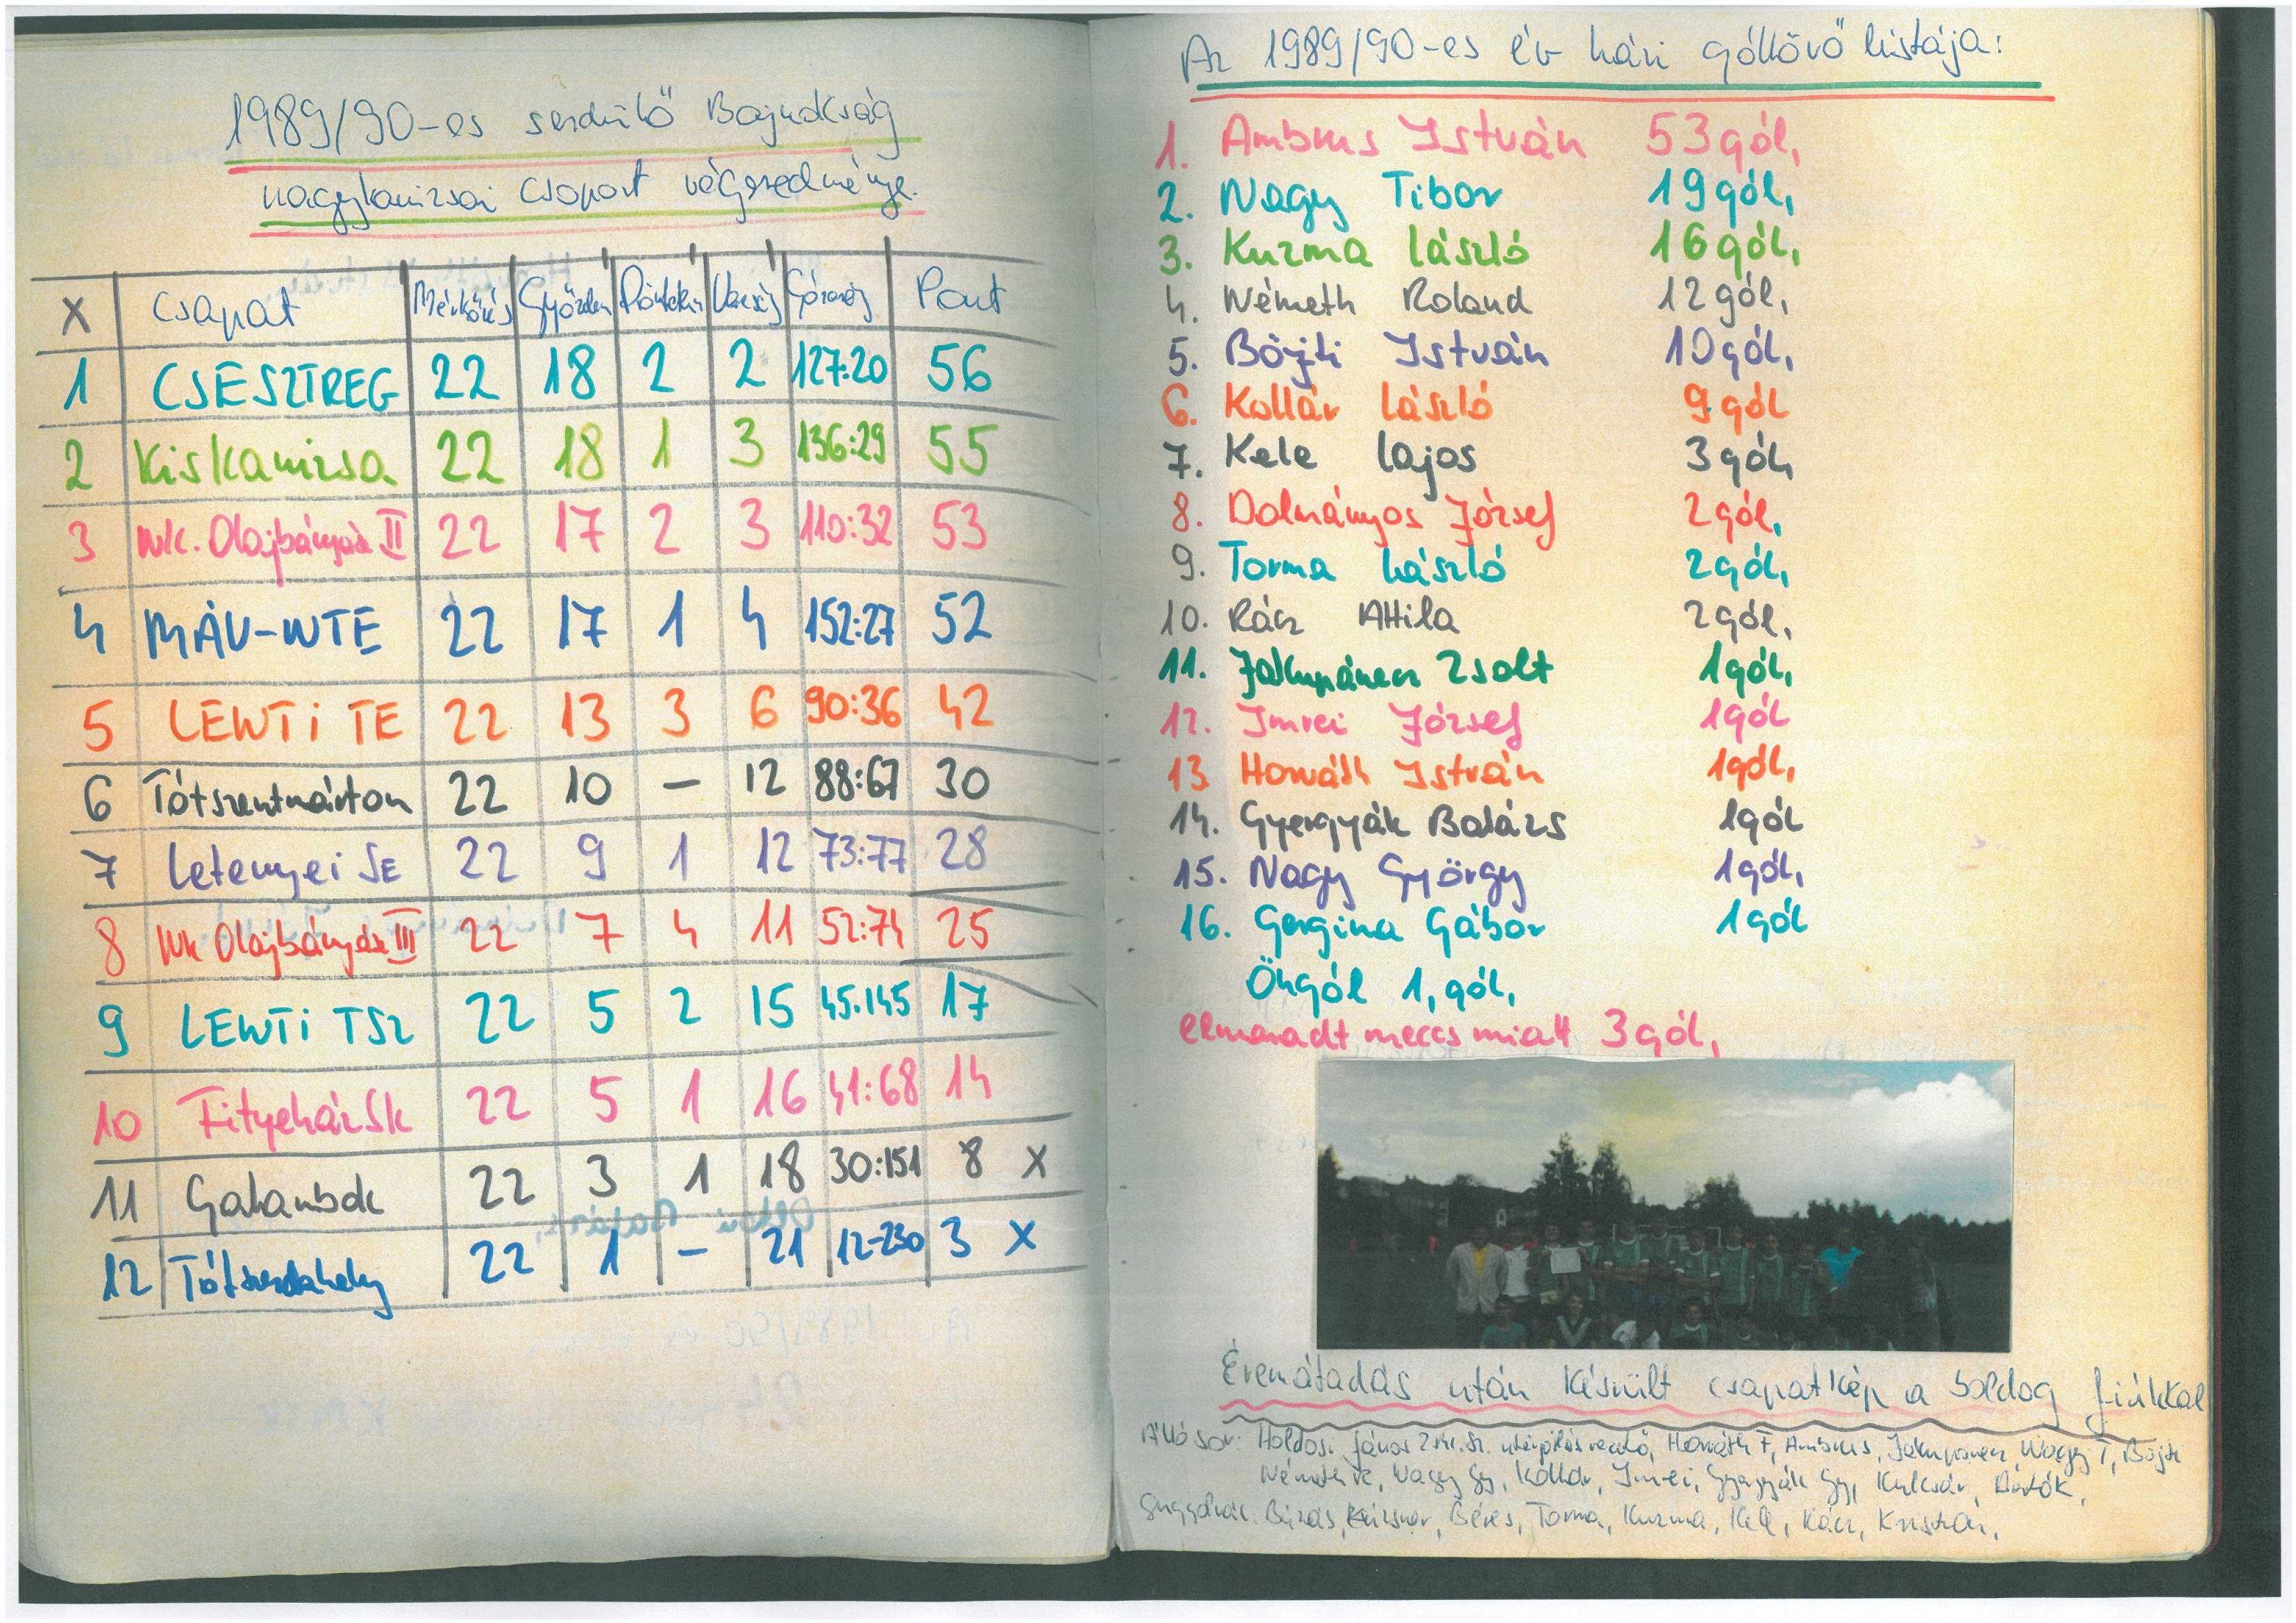 1989/90-es serdülő Bajnokság
nagykanizsai csoport végeredménye.
X Csapat Mérkőzés Győzelem Döntetlen Vereség Gólarány Pont
1 CSESZTREG 22 18 2 2 127:20 56
2 Kiskanizsa 22 18 1 3 136:29 55
3 Nk. Olajbányász II 22 17 2 3 110:32 53
4 MÁV-NTE 22 17 1 4 152:27 52
5 LENTI TE 22 13 3 6 90:36 42
6 Tótszentmárton 22 10 - 12 88:67 30
7 Letenyei SE 22 9 1 12 73:77 28
8 Nk Olajbányász III 22 7 4 11 52:74 25
9 LENTI TSZ 22 5 2 15 45.145 17
10 Fityeház Sk 22 5 1 16 41:68 14
11 Galambok 22 3 1 18 30:151 8 X
12 Tótszerdahely 22 1 - 21 12-230 3 X
Az 1989/90-es év házi góllövő listája:
1. Ambrus István 53 gól,
2. Nagy Tibor 19 gól,
3. Kuzma László 16 gól,
4. Németh Roland 12 gól,
5. Böjti István 10 gól,
6. Kollár László 9 gól
7. Kele Lajos 3 gól,
8. Dolmányos József 2 gól,
9. Torma László 2 gól,
10. Rácz Attila 2 gól,
11. Jakupánecz Zsolt 1 gól,
12. Imrei József 1 gól
13 Horváth István 1 gól,
14. Gyergyák Balázs 1 gól
15. Nagy György 1 gól,
16. Gergina Gábor 1 gól
Öngól 1, gól,
elmaradt meccs miatt 3 gól,
Éremátadás után készült csapatkép a boldog fiúkkal
Álló sor: Holdosi János utánpótlás vezető, Horváth F, Ambrus, Jakupanecz, Nagy T, Böjti
Németh R, Nagy Gy, Kollár, Imrei, Gyergyák Gy, Kulcsár, Bartók,
Guggolnak: Búzás, Béres, Torma, Kuzma, Kele, Rácz, Krisztián,